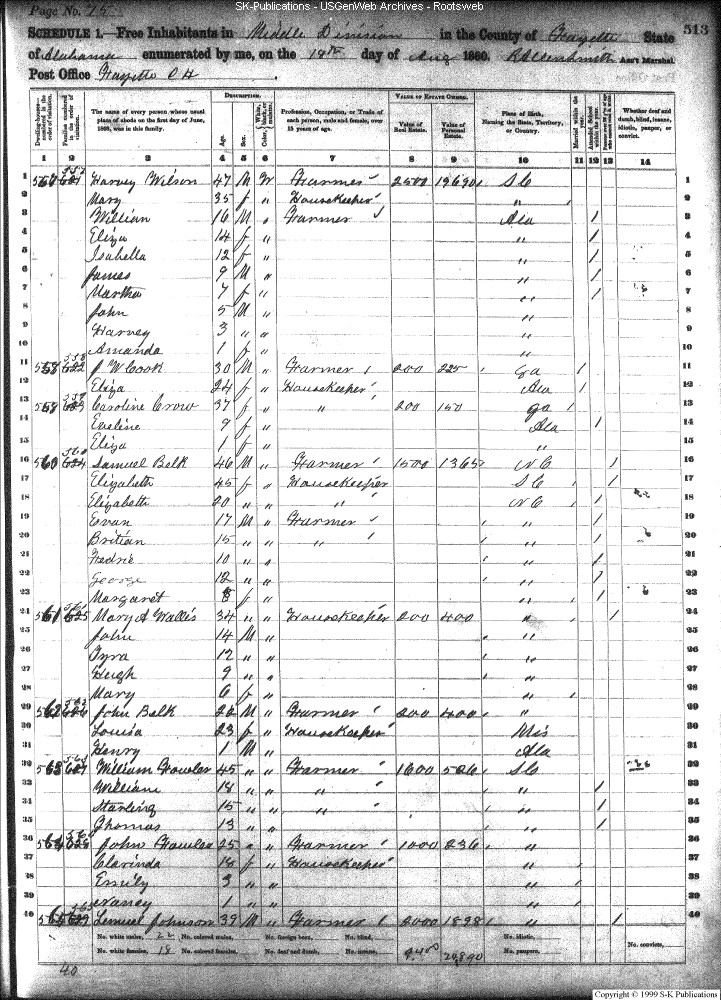 SK-Publications - USGenWeb Archives - Rootsweb
Page No. 75
513
SCHEDULE 1.—Free Inhabitants in Middle Division in the County of Fayette State
of Alabama enumerated by me, on the 18th day of Aug 1860. Ass't Marshal.
Post Office Fayette C H
Dwelling-houses—numbered in the order of visitation.
Families numbered in the order of visitation.
The name of every person whose usual place of abode on the first day of June, 1860, was in this family.
DESCRIPTION.
Age.
Sex.
Color,
Profession, Occupation, or Trade of each person, male and female, over 15 years of age.
VALUE OF ESTATE OWNED.
Value of Real Estate.
Value of Personal Estate.
Place of Birth, Naming the State, Territory, or Country.
Married within the year.
Attended School within the year.
Whether deaf and dumb, blind, insane, idiotic, pauper, or convict.
1 2 3 4 5 6 7 8 9 10 11 12 13 14
1 Harvey Wilson 47 M W Farmer 2500 19690 S C 1
2 Mary 35 f " Housekeeper " 2
3 William 16 M " Farmer Ala / 3
4 Eliza 14 f " " / 4
5 Isabella 12 f " " / 5
6 James 9 M " " / 6
7 Martha 7 f " " / 7
8 John 5 M " " 8
9 Harvey 3 " " " 9
10 Amanda 1 f " " 10
11 558 622 J W Cook 30 M " Farmer 200 225 Ga / 11
12 Eliza 24 f " Housekeeper Ala / 12
13 559 623 Caroline Crow 37 f " " 200 150 Ga / 13
14 Eveline 9 f " Ala / 14
15 Eliza 1 f " " 15
16 560 624 Samuel Belk 46 M " Farmer 1500 1365 N C / 16
17 Elizabeth 45 f " Housekeeper S C / 17
18 Elizabeth 20 " " " N C / 18
19 Evan 17 M " Farmer " / 19
20 Britian 15 " " " " / 20
21 10 " " " / 21
22 George 12 " " " / 22
23 Margaret 8 f " " / 23
24 561 625 Mary A Wallis 34 " " Housekeeper 200 400 " / 24
25 John 14 M " " 25
26 Tyra 12 " " " 26
27 Hugh 9 " " " 27
28 Mary 6 f " " 28
29 562 626 John Belk 22 M " Farmer 200 400 " 29
30 Louisa 23 f " Housekeeper Mis 30
31 Henry 1 M " Ala 31
32 563 627 William Fowler 45 " " Farmer 1600 526 S C 32
33 William 18 " " " " / 33
34 Starling 15 " " " " / 34
35 Thomas 13 " " " / 35
36 564 628 John Fowler 25 " " Farmer 1000 236 " 36
37 Clarinda 18 f " Housekeeper " 37
38 Emily 3 " " " 38
39 Nancy 1 " " " 39
40 565 629 Lemuel Johnson 39 M " Farmer 2000 1898 " / 40
No. white males, 22 No. colored males, No. foreign born, No. blind, No. idiotic,
No. white females, 18 No. colored females, No. deaf and dumb, No. insane, 9.400 24,890 No. paupers, No. convicts,
40
Copyright © 1999 S-K Publications